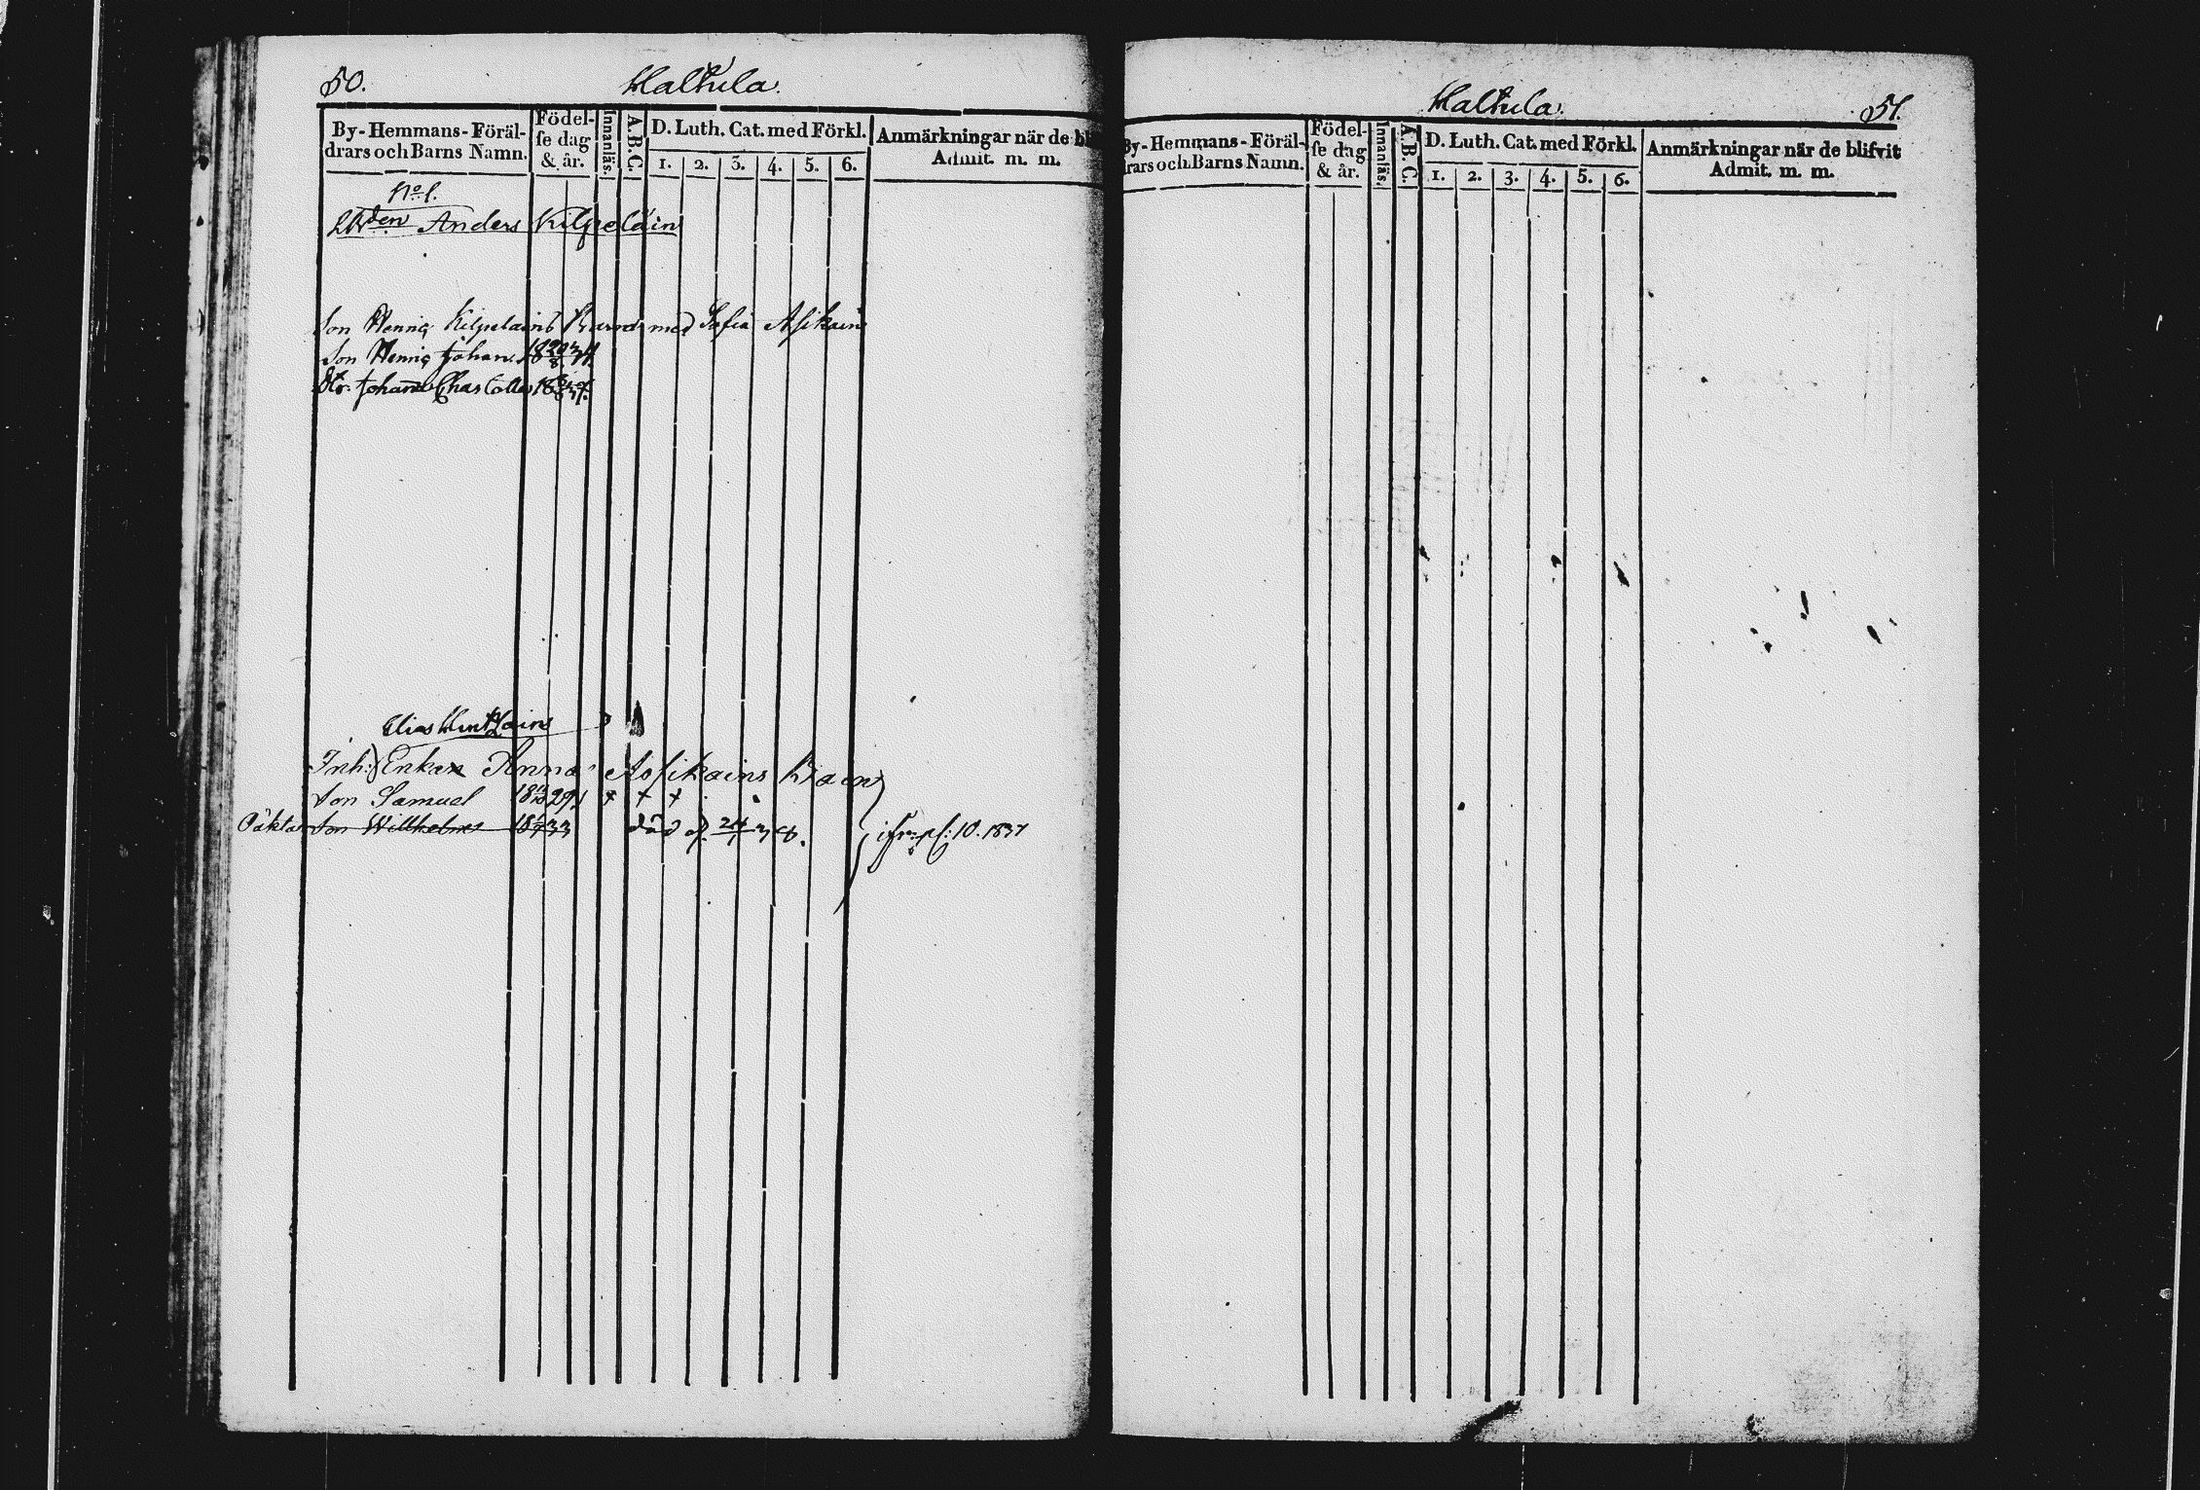 50.
Haltula.
By-Hemmans-Föräl-
drars och Barns Namn.
Födel-
se dag
& år.
Innanläs.
A.B.C.
D. Luth. Cat. med Förkl.
1. 2. 3. 4. 5. 6.
Anmärkningar när de bl
Admit. m. m.
No 1.
Anders Kilpeläin
Son Henric Kilpelains Barn med Sofia Asikain
Son Henric Johan
Johana Charlotta
Elias
Inh: Enkan Anna Assikains Barn
Son Samuel 29 + + +
Son Wilhelm 33 död d. 24 38.
1837
Haltula.
51.
By-Hemmans-Föräl-
drars och Barns Namn.
Födel-
se dag
& år.
Innanläs.
A.B.C.
D. Luth. Cat. med Förkl.
1. 2. 3. 4. 5. 6.
Anmärkningar när de blifvit
Admit. m. m.